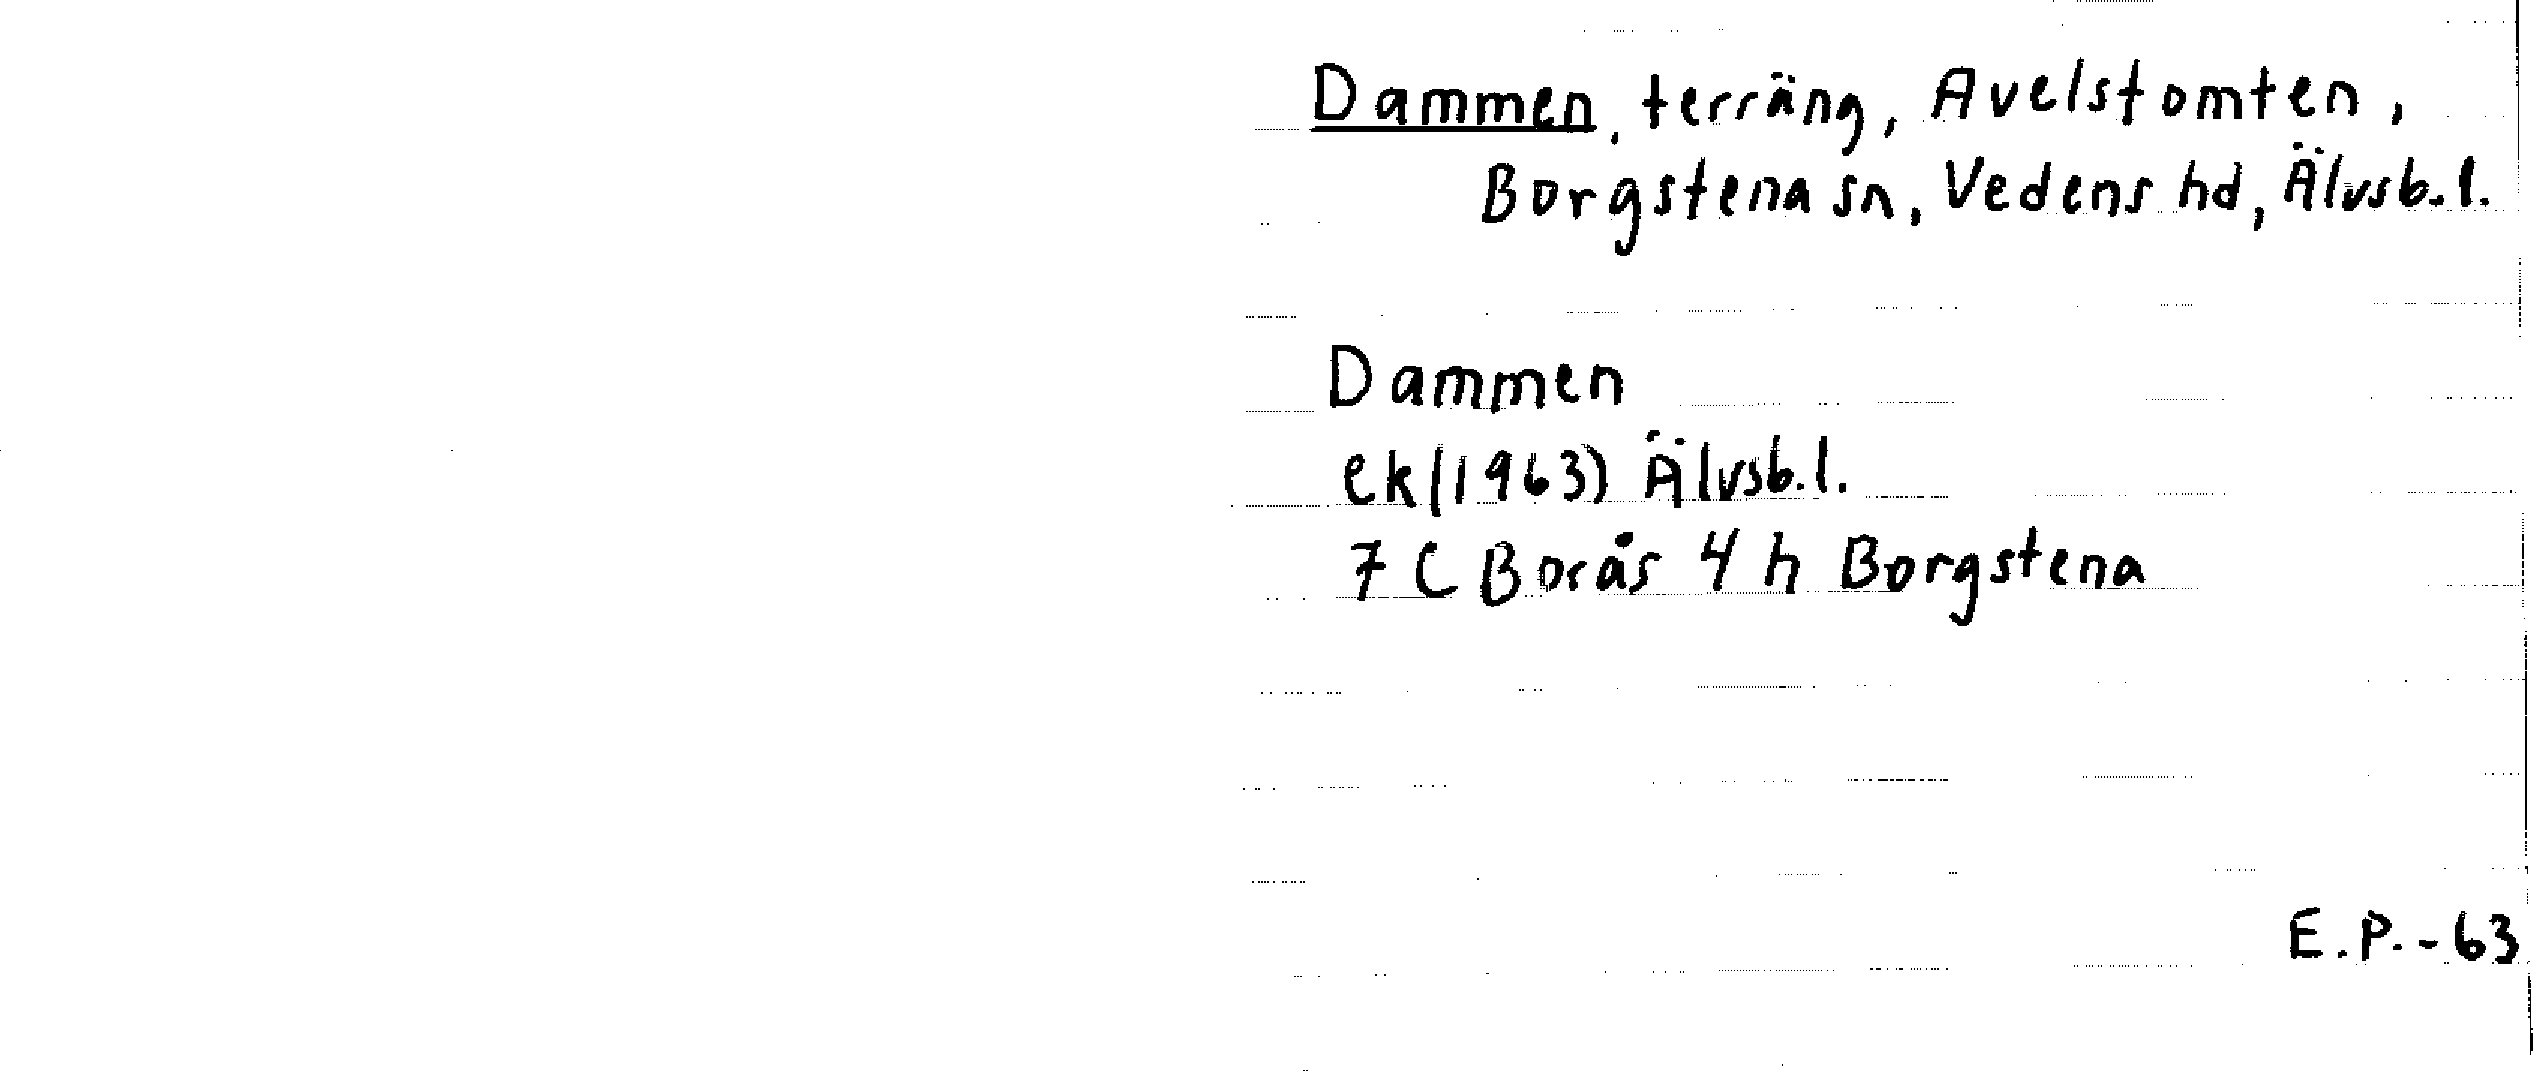 Dammen, terräng, Avelstomten,
Borgstena sn, Vedens hd, Älvsb.l.
Dammen
ek (1963) Älvsb.l.
7 C Borås 4 h Borgstena
E.P. -63